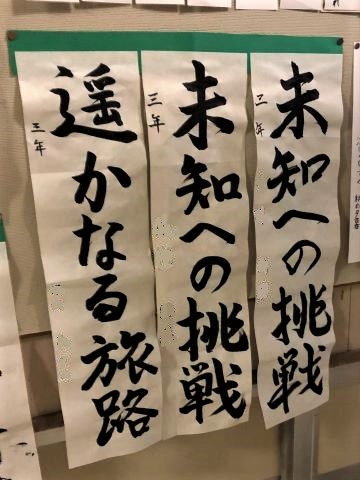 未知への挑戦
二年
未知への挑戦
三年
遥かなる旅路
三年